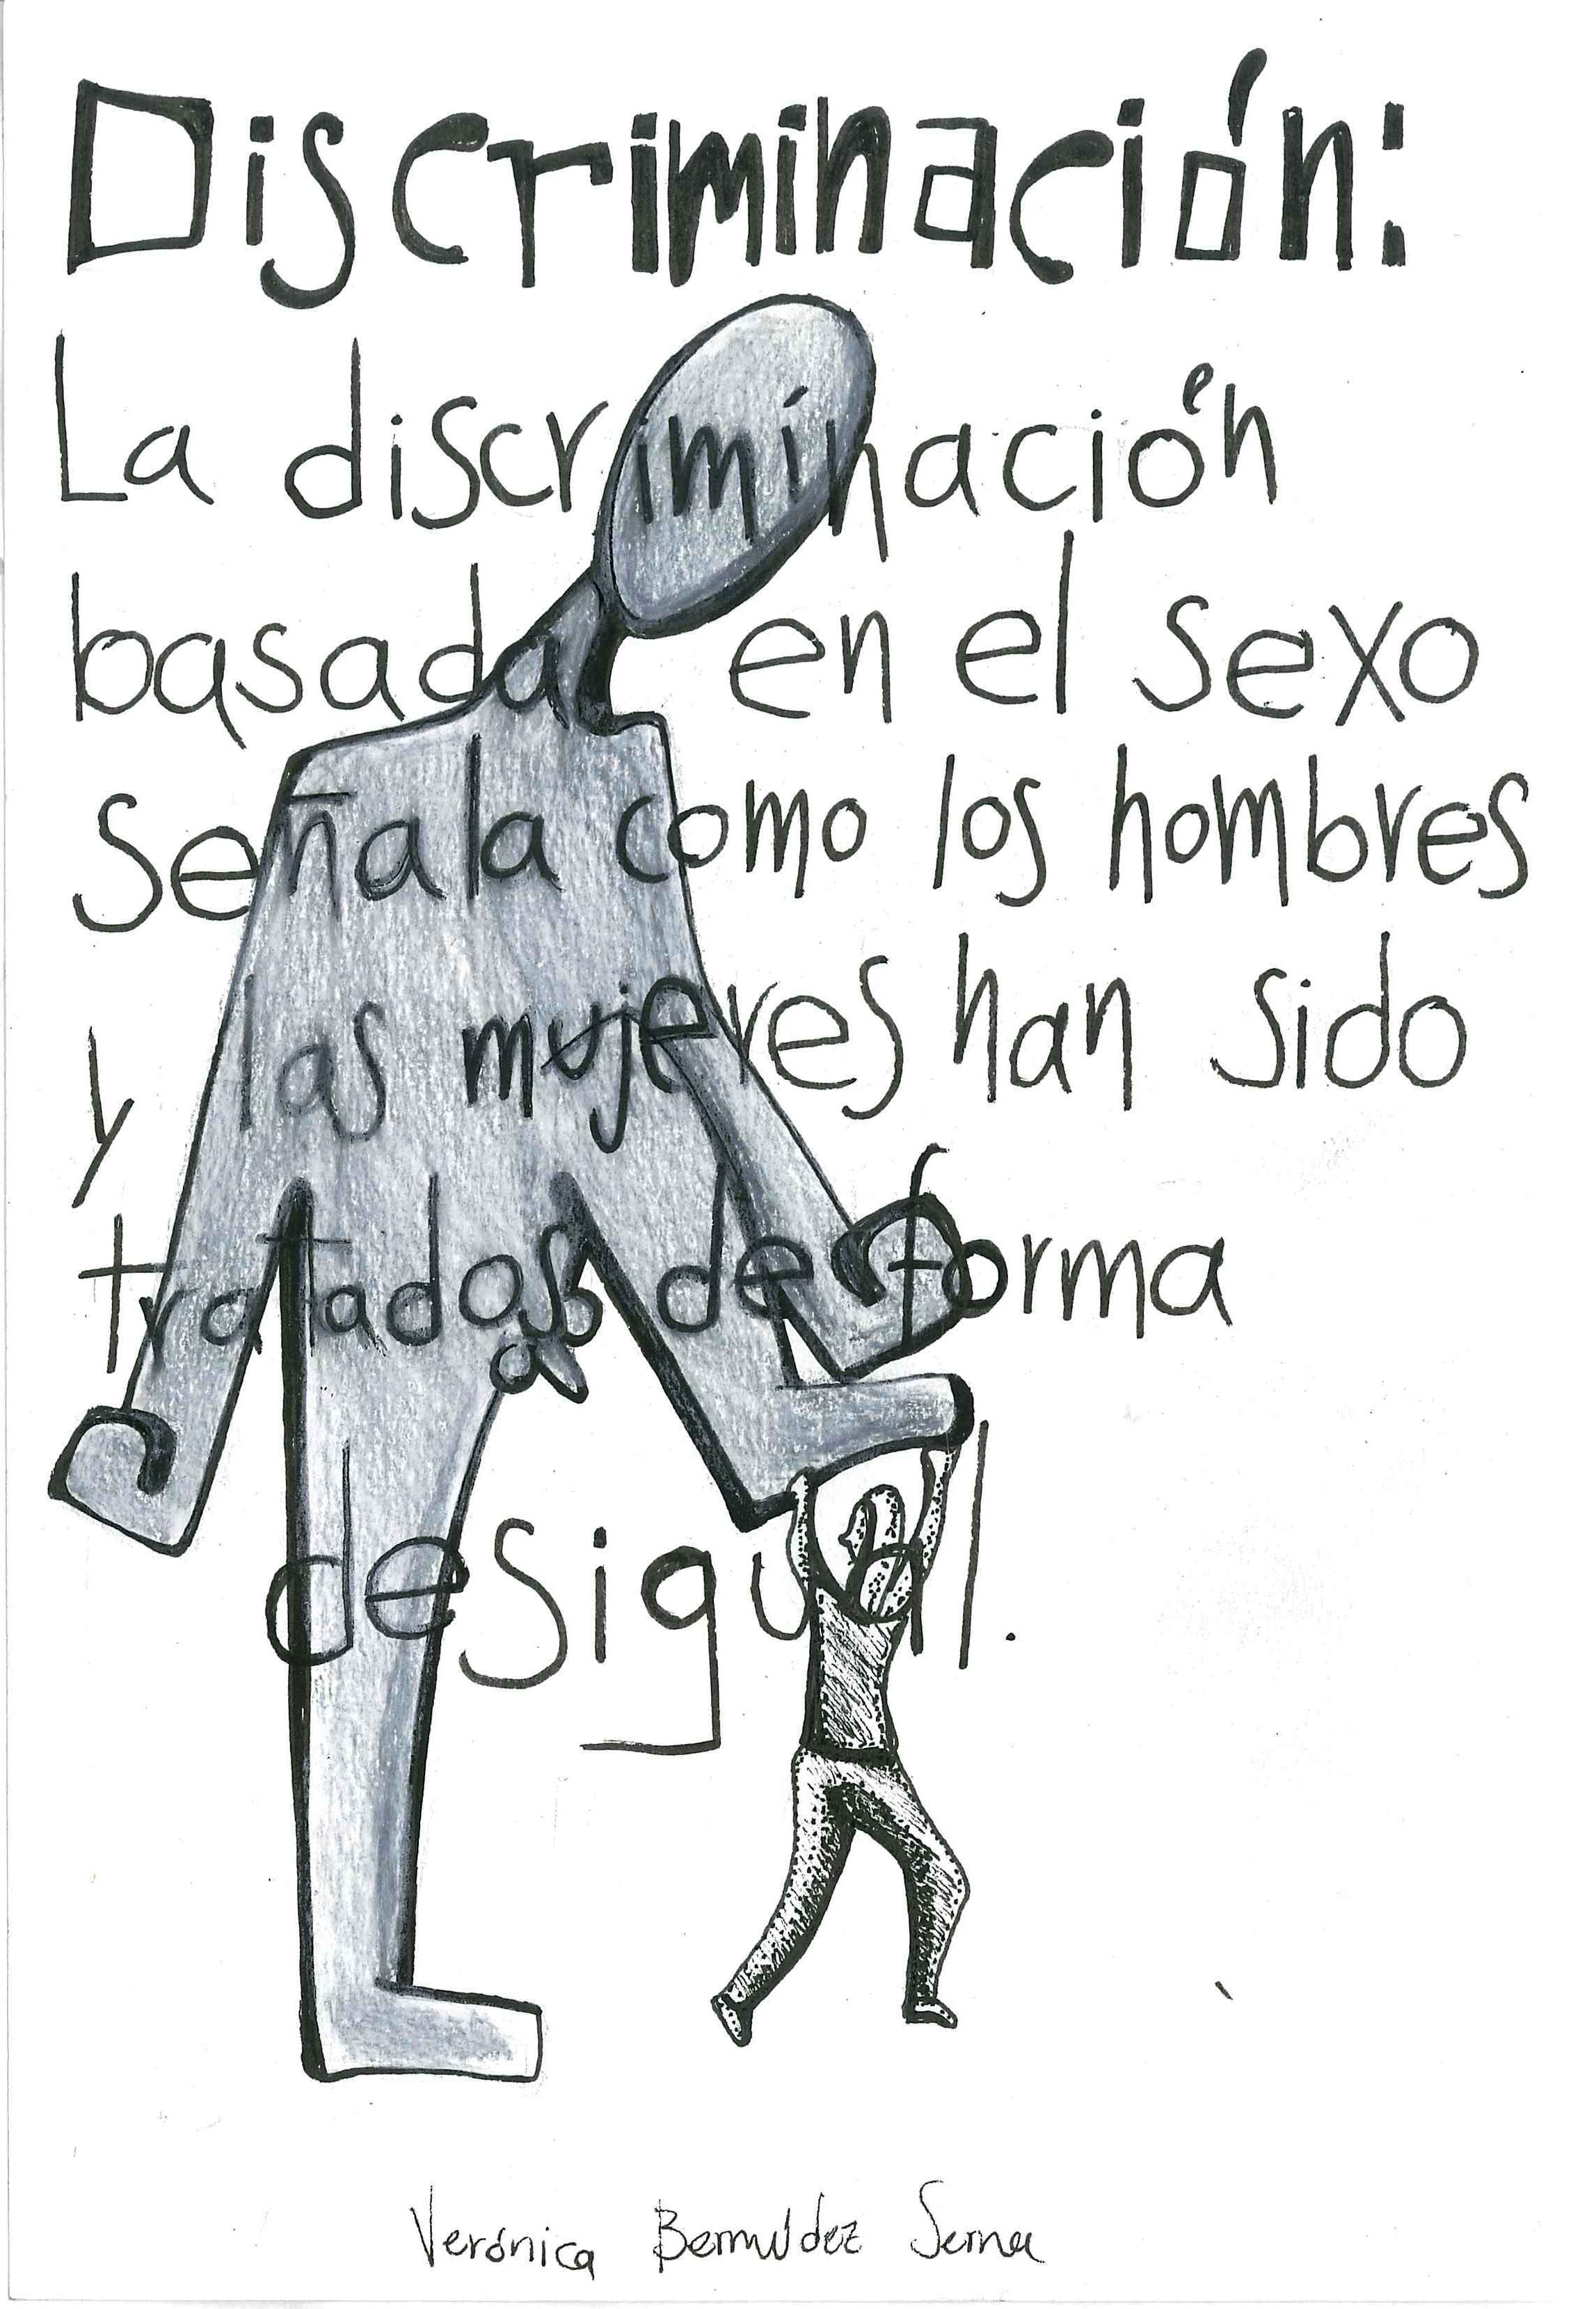 Discriminación:
La discriminación
basada en el sexo
señala como los hombres
y las mujeres han sido
tratadas de forma
desigual.
Verónica Bermúdez Serna